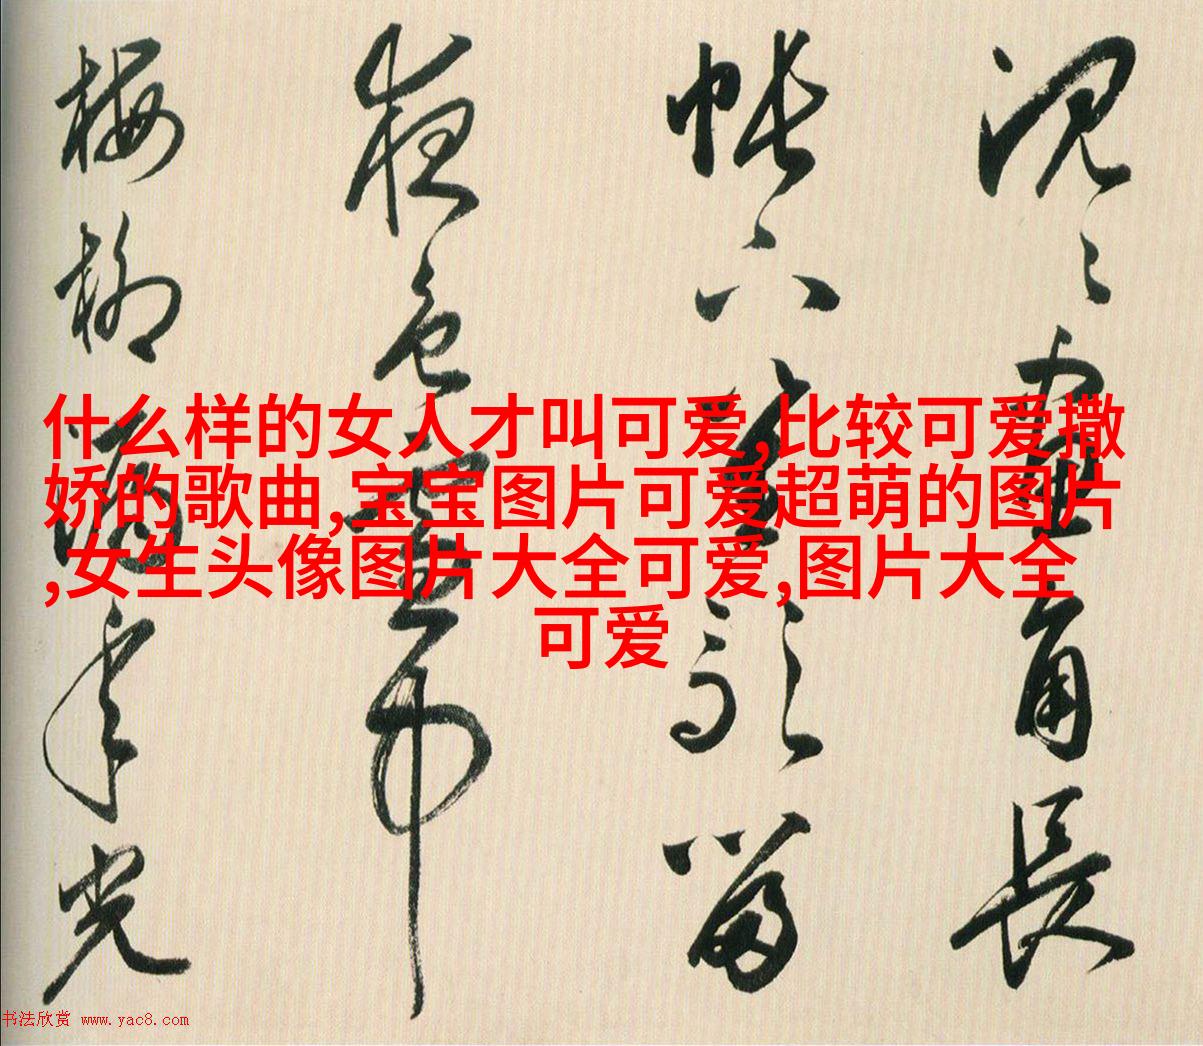 畫角長
帳六留
夜色
梅柳年光
什么样的女人才叫可爱,比较可爱撒
娇的歌曲,宝宝图片可爱超萌的图片
,女生头像图片大全可爱,图片大全
可爱
书法欣赏 www.yac8.com